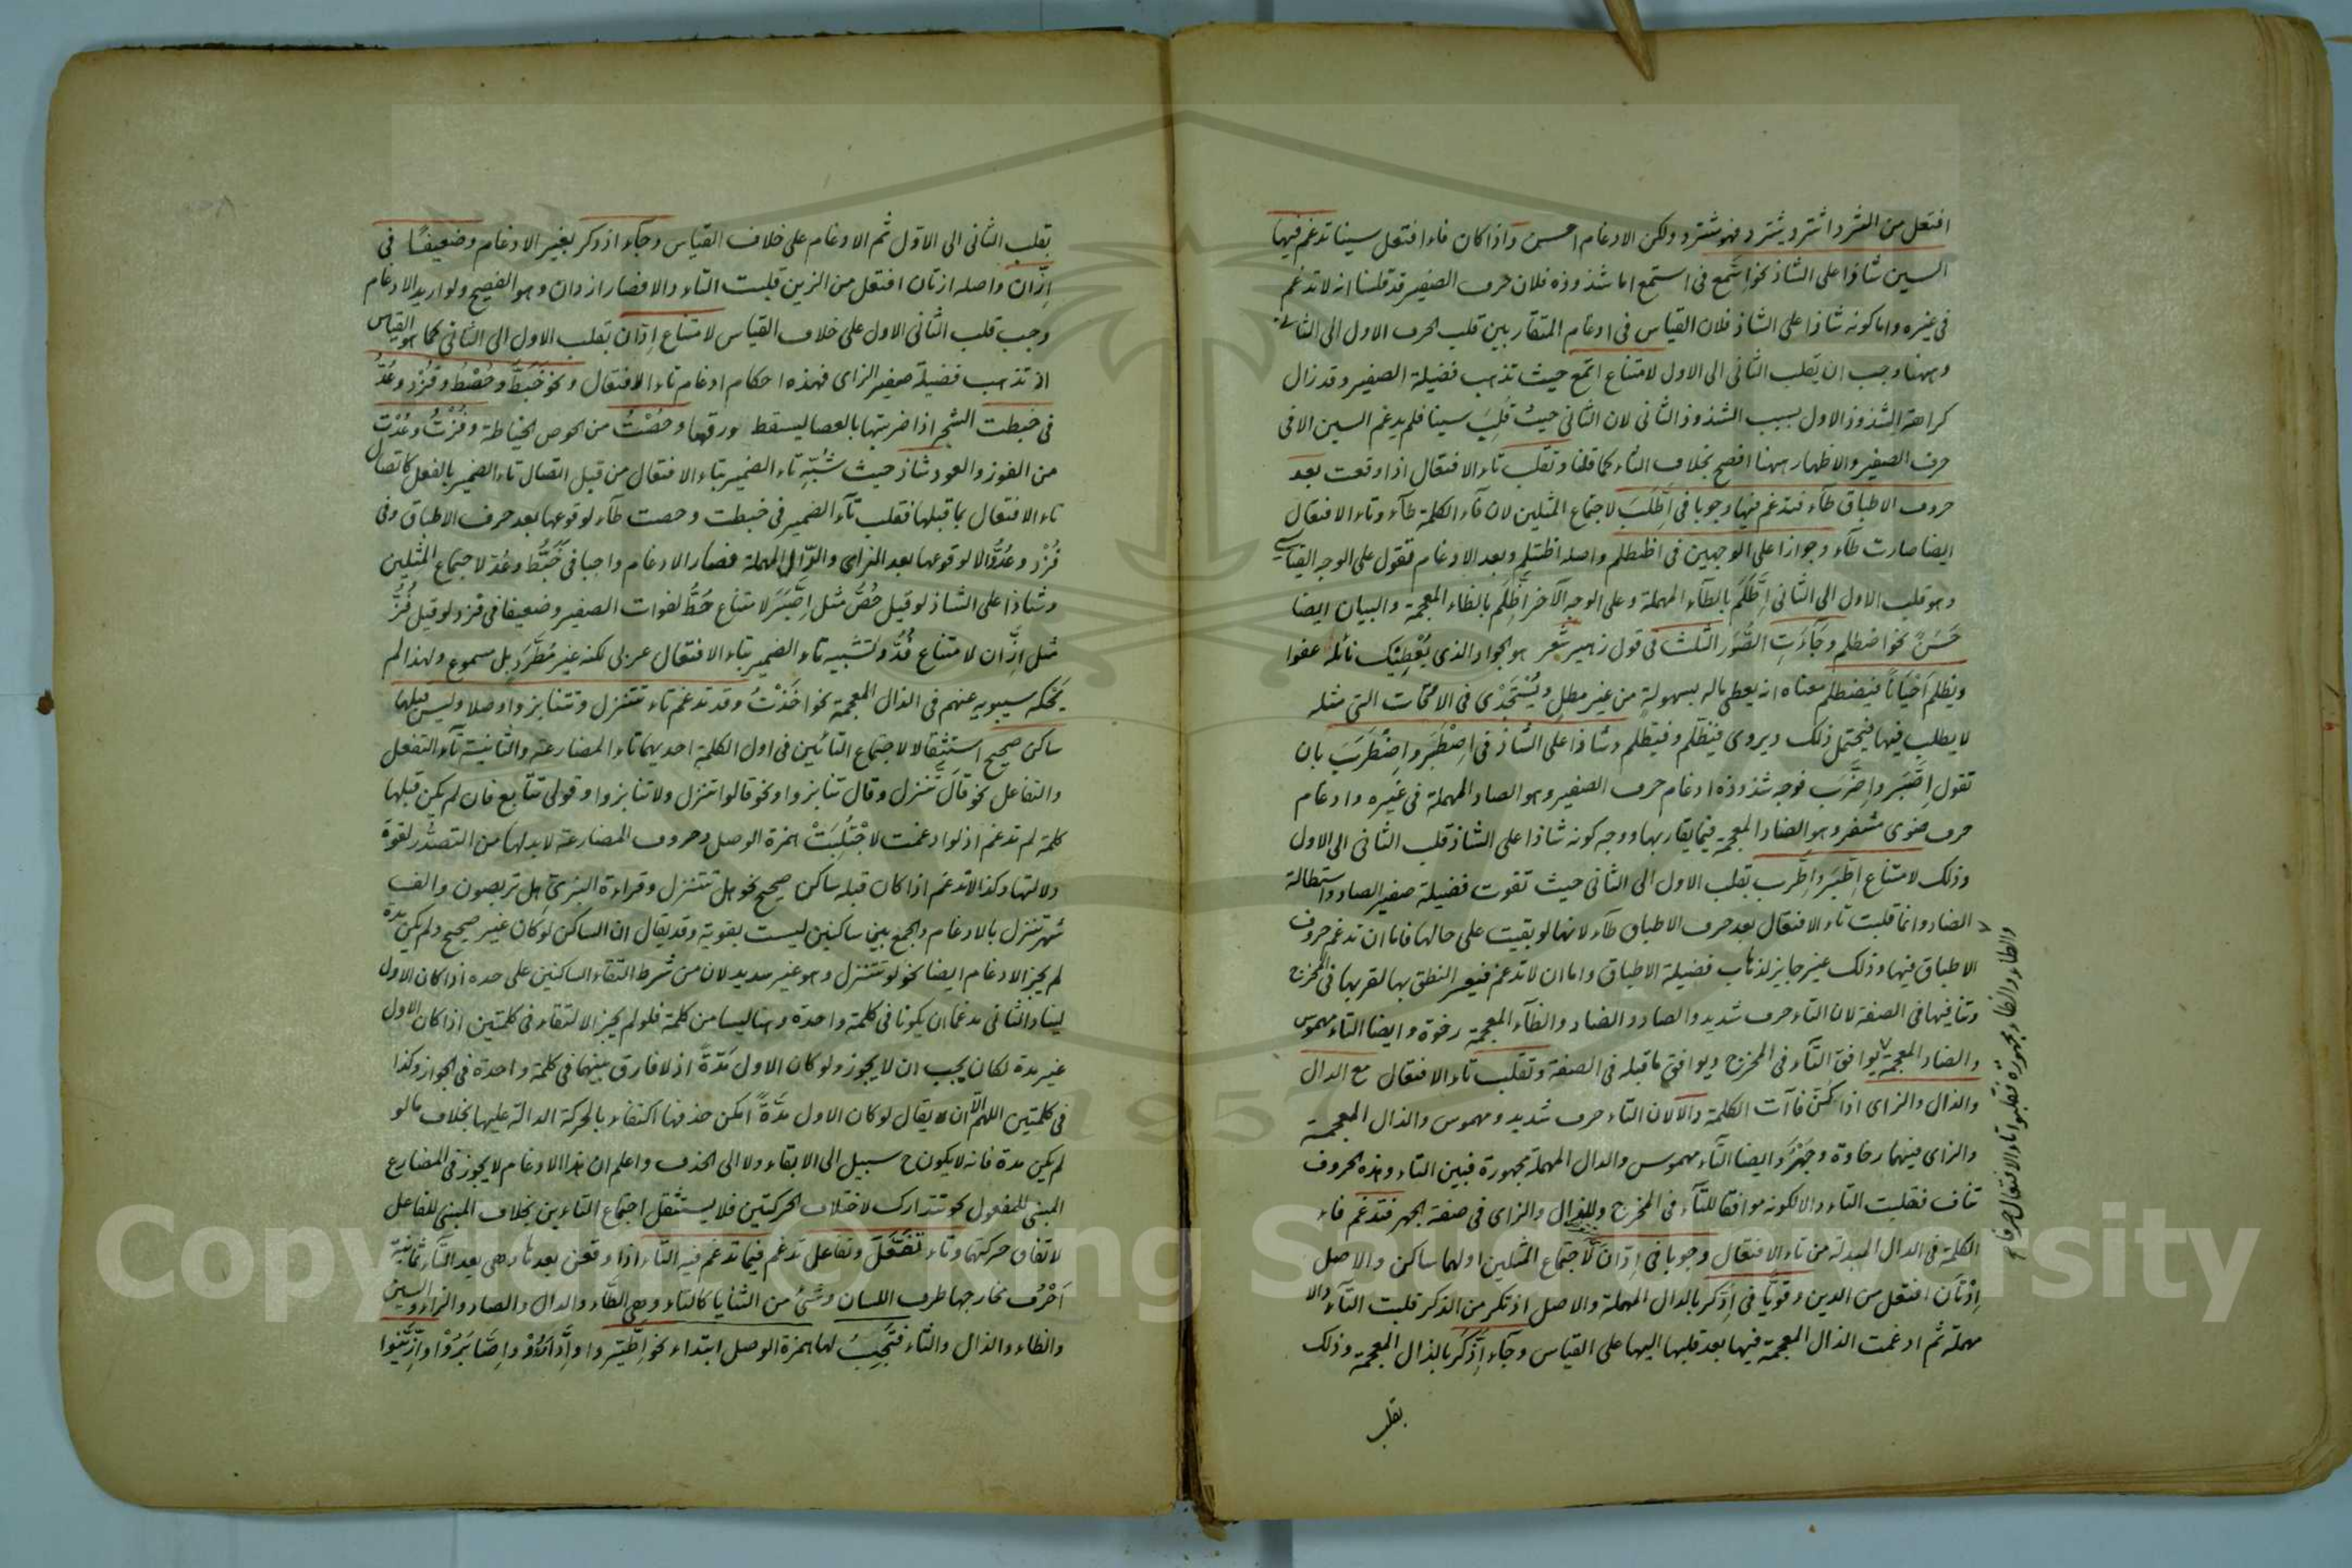 افتعل من الشرد اشترد يشترد فهو مشترد ولكن الادغام احسن واذا كان فاء افتعل سينا تدغم فيها
السين شاذا على الشاذ نحو اسّمع فى استمع اما شذوذه فلان حرف الصفير قد قلنا انه لا تدغم
فى غيره واما كونه شاذا على الشاذ فلان القياس فى ادغام المتقاربين قلب الحرف الاول الى الثانى
وههنا وجب ان يقلب الثانى الى الاول لامتناع اتّمع حيث تذهب فضيلة الصفير وقد زال
كراهة الشذوذ الاول بسبب الشذوذ الثانى لان الثانى حيث قُلِبَ سينا فلم يدغم السين الا فى
حرف الصفير والاظهار ههنا افصح بخلاف الثاء كما قلنا وتقلب تاء الافتعال اذا وقعت بعد
حروف الاطباق طآء فتدغم فيها وجوبا فى اِطَّلَبَ لاجتماع المثلين لان فآء الكلمة طآء وتاء الافتعال
ايضا صارت طآء وجوازا على الوجهين فى اظطلم واصله اظتلم وبعد الادغام فتقول على الوجه القياسى
وهو قلب الاول الى الثانى اِطَّلَمَ بالطآء المهملة وعلى الوجه الآخر اِظَّلَمَ بالظاء المعجمة والبيان ايضا
حَسَنٌ نحو اظطلم وجَآءَتِ الصُّوَر الثلث فى قول زهير شعر هو الجواد الذى يُعْطِيْك نائله عفوا
ويظلم اَحْيَاناً فيضطلم معناه انه يعطى ماله بسهولة من غير مطل ويُسْتَجْدٰى فى الاوقات التى مثله
لا يطلب فيها فيحتمل ذلك ويروى فيظّلم وفيطّلم وشاذا على الشاذ فى اِصْطَبَر واِضْطَرَبَ بان
تقول اِصَّبَر واِضَّرَب فوجه شذوذه ادغام حرف الصفير وهو الصاد المهملة فى غيره وادغام
حرف ضوى مشفر وهو الضاد المعجمة فيما يقاربها ووجه كونه شاذا على الشاذ قلب الثانى الى الاول
وذلك لامتناع اِطَّبَر واِطَّرب بقلب الاول الى الثانى حيث تفوت فضيلة صفير الصاد واستطالة
الضاد وانما قلبت تاء الافتعال بعد حرف الاطباق طآء لانها لو بقيت على حالها فاما ان تدغم حروف
الاطباق فيها وذلك غير جايز لذهاب فضيلة الاطباق واما ان لا تدغم فيعسر النطق بها لقربها فى المخرج
وتنافيها فى الصفة لان التاء حرف شديد والصاد والضاد والظآء المعجمة رخوة وايضا التاء مهموس
والضاد المعجمة يوافق التآء فى المخرج ويوافق ما قبله فى الصفة وتقلب تاء الافتعال مع الدال
والذال والزاى اذا كُنّ فاآت الكلمة دالا لان التاء حرف شديد ومهموس والذال المعجمة
والزاى فيهما رخاوة وجَهْرٌ وايضا التآء مهموس والدال المهملة مجهورة فبين التاء وهذه الحروف
تناف فقلبت التاء دالا لكونه موافقا للتآء فى المخرج وللذال والزاى فى صفة الجهر فتدغم فاء
الكلمة فى الدال المبدلة من تاء الافتعال وجوبا فى اِدّانَ لاجتماع المثلين اولهما ساكن والاصل
اِدْتَانَ افتعل من الدين وقويًّا فى اِدَّكر بالدال المهملة والاصل اذتكر من الذكر قلبت التآء دالا
مهملة ثم ادغمت الذال المعجمة فيها بعد قلبها اليها على القياس وجآء اِذَّكَر بالذال المعجمة وذلك
بقلب
والطاء والظاء مجهورة فقلبوا تاء الافتعال حرفا
بقلب الثانى الى الاول ثم الادغام على خلاف القياس وجآء اذدكر بغير الادغام وضعيفًا فى
اِزّان واصله ازتان افتعل من الزين قلبت التاء دالا فصار ازدان وهو الفصيح ولو اريد الادغام
وجب قلب الثانى الاول على خلاف القياس لامتناع اِدّان بقلب الاول الى الثانى كما هو القياس
اذ تذهب فضيلة صفير الزاى فهذه احكام ادغام تاء الافتعال ونحو خَبَطَّ وحُصْطُ وفُزْدُ وعُدُّ
فى خبطت الشجر اذا ضربتها بالعصا ليسقط ورقها وحُصْتُ من الحوص الخياطة وفُزْتُ وعُدْتُ
من الفوز والعود شاذ حيث شُبّه تاء الضمير بتاء الافتعال من قبل اتصال تاء الضمير بالفعل كاتصال
تاء الافتعال بما قبلها فقلب تآء الضمير فى خبطت وحصت طآء لوقوعها بعد حرف الاطباق وفى
فُزْدُ وعُدُّ دالا لوقوعها بعد الزاى والدال المهملة فصار الادغام واجبا فى خَبَطُّ وعُدّ لاجتماع المثلين
وشاذا على الشاذ لو قيل حُصُّ مثل اِصَّبَرَ لامتناع حُطُّ لفوات الصفير وضعيفا فى فزد لو قيل فُزُّ
مثل اِزَّان لامتناع فُدُّ وتشبيه تاء الضمير بتاء الافتعال عربى لكنه غير مُطّرد بل مسموع ولهذا لم
يَحْكه سيبويه عنهم فى الذال المعجمة نحو اخَذْتُ وقد تدغم تاء تتنزل وتتنابزوا وصلا وليس قبلها
ساكن صحيح استثقالا لاجتماع التائين فى اول الكلمة احديهما تاء المضارعة والثانية تآء التفعل
والتفاعل نحو قال تّنزل وقال تّنابزوا ونحو قالوا تنزل ولا تنابزوا وقولى تتّابع فان لم يكن قبلها
كلمة لم تدغم اذ لو ادغمت لاجْتُلِبَتْ همزة الوصل وحروف المضارعة لا بد لها من التصدُّر لقوة
دلالتها وكذا لا تدغم اذا كان قبله ساكن صحيح نحو هل تتنزل وقراءة البزىّ هل تربصون والف
شهر تنزل بالادغام والجمع بين ساكنين ليست بقوية وقد يقال ان الساكن لو كان غير صحيح ولم يكن مدة
لم يجز الادغام ايضا نحو لو تتنزل وهو غير سديد لان من شرط التقاء الساكنين على حده اذا كان الاول
لينا والثانى مدغما ان يكونا فى كلمة واحدة وهنا ليسا من كلمة فلو لم يجز الالتقاء فى كلمتين اذا كان الاول
غير مدة لكان يجب ان لا يجوز ولو كان الاول مَدّةً اذ لا فارق بينهما فى كلمة واحدة فى الجواز وكذا
فى كلمتين اللهم الّا ان يقال لو كان الاول مدَّةً امكن حذفها اكتفاء بالحركة الدالة عليها بخلاف ما لو
لم يكن مدة فانه لا يكون ح سبيل الى الابقاء ولا الى الحذف واعلم ان هذا الادغام لا يجوز فى المضارع
المبنى للمفعول نحو تتدارك لاختلاف الحركتين فلا يستثقل اجتماع التاءين بخلاف المبنى للفاعل
لاتفاق حركتهما وتاء تَفَعَّلَ وتفاعل تدغم فيما تدغم فيه التآء اذا وقعن بعدها وهى بعد التآء ثمانية
اَحْرُف مخارجها طرف اللسان وشئ من الثنايا كالتاء وهى الطّاء والدال والصاد والزاء والسين
والظاء والذال والثاء فتُجْلَبُ لها همزة الوصل ابتداء نحو اِطَّيّروا واِدّارَؤْا واِصّابَرُوْا وازَّيّنوا